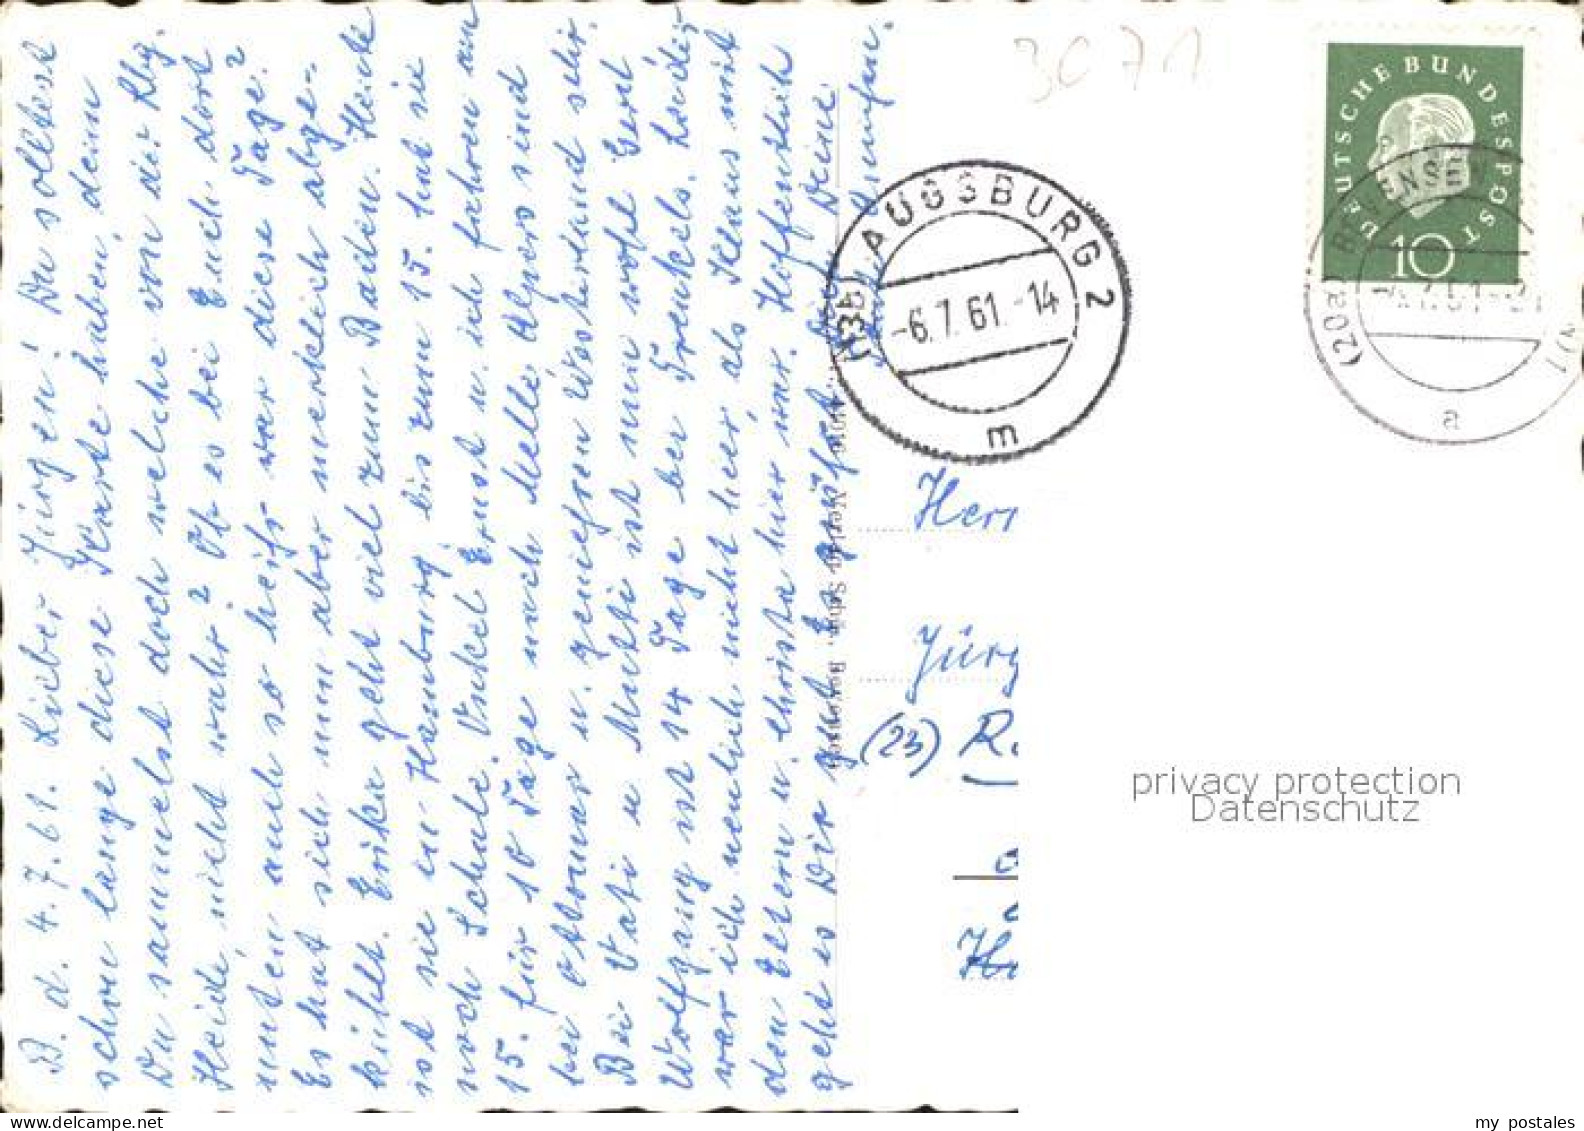 B. d. 4.7.61. Lieber Jürgen! Du solltest
schon lange diese Karte haben, denn
Du sammelst doch welche von der Rbg.
Heide, nicht wahr? Ob es bei Euch dort
unten auch so heiß war diese Tage?
Es hat sich nun aber merklich abge-
kühlt. Erika geht viel zum Baden. Heute
ist sie in Hamburg, bis zum 15. hat sie
noch Schule. Onkel Ernst u. ich fahren am
15. für 10 Tage nach Melle. Alpers sind
bei Ottomar u. genießen Westerland sehr.
Bei Vati u Mutti ist nun wohl Gert
Wolfgang ist 14 Tage bei Frenkels. Leider
war ich neulich nicht hier, als Klaus mit
den Eltern u. Christa hier war. Hoffentlich
geht es Dir gut. Es grüßt Deine
Annefran.
3071
DEUTSCHE BUNDESPOST
10
(13b) AUGSBURG 2
-6.7.61.-14
m
(20a)
a
Herr
Jürg
(23) R.
privacy protection
Datenschutz
my postales